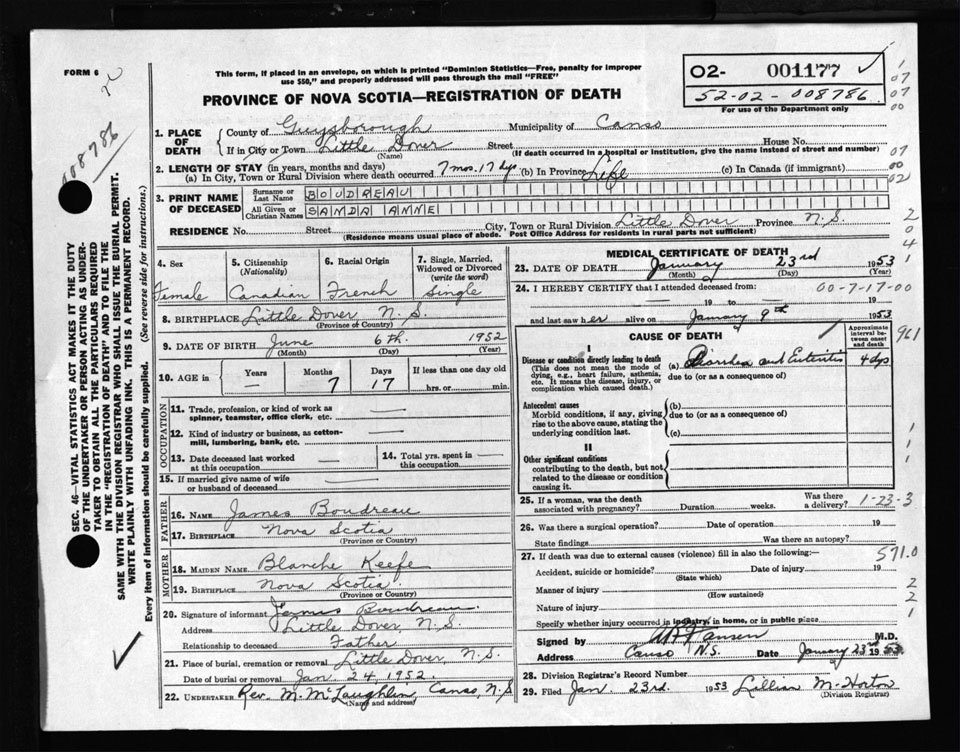 FORM 6
This form, if placed in an envelope, on which is printed "Dominion Statistics—Free, penalty for improper
use $50," and properly addressed will pass through the mail "FREE"
PROVINCE OF NOVA SCOTIA—REGISTRATION OF DEATH
02- 001177
52-02-008786
For use of the Department only
008786
SEC. 46—VITAL STATISTICS ACT MAKES IT THE DUTY
OF THE UNDERTAKER OR PERSON ACTING AS UNDER-
TAKER TO OBTAIN ALL THE PARTICULARS REQUIRED
IN THE "REGISTRATION OF DEATH" AND TO FILE THE
SAME WITH THE DIVISION REGISTRAR WHO SHALL ISSUE THE BURIAL PERMIT.
WRITE PLAINLY WITH UNFADING INK. THIS IS A PERMANENT RECORD.
Every item of information should be carefully supplied. (See reverse side for instructions.)
1. PLACE OF DEATH
County of Guysborough Municipality of Canso
If in City or Town Little Dover Street House No.
(Name) (If death occurred in a hospital or institution, give the name instead of street and number)
2. LENGTH OF STAY (in years, months and days)
(a) In City, Town or Rural Division where death occurred 7 mos. 17 dys (b) In Province Life (c) In Canada (if immigrant)
3. PRINT NAME OF DECEASED
Surname or Last Name BOUDREAU
All Given or Christian Names SANDA ANNE
RESIDENCE No. Street City, Town or Rural Division Little Dover Province N.S.
(Residence means usual place of abode. Post Office Address for residents in rural parts not sufficient)
4. Sex
Female
5. Citizenship (Nationality)
Canadian
6. Racial Origin
French
7. Single, Married, Widowed or Divorced (write the word)
Single
8. BIRTHPLACE Little Dover N.S.
(Province or Country)
9. DATE OF BIRTH June 6th. 1952
(Month) (Day) (Year)
10. AGE in Years Months Days If less than one day old
— 7 17 hrs. or min.
OCCUPATION
11. Trade, profession, or kind of work as
spinner, teamster, office clerk, etc.
12. Kind of industry or business, as cotton-
mill, lumbering, bank, etc.
13. Date deceased last worked
at this occupation
14. Total yrs. spent in
this occupation
15. If married give name of wife
or husband of deceased
FATHER
16. NAME James Boudreau
17. BIRTHPLACE Nova Scotia
(Province or Country)
MOTHER
18. MAIDEN NAME Blanche Keefe
19. BIRTHPLACE Nova Scotia
(Province or Country)
20. Signature of informant James Boudreau.
Address Little Dover, N.S.
Relationship to deceased Father
21. Place of burial, cremation or removal Little Dover, N.S.
Date of burial or removal Jan 24, 1952.
22. UNDERTAKER Rev. M. McLaughlin, Canso, N.S
(Name and address)
MEDICAL CERTIFICATE OF DEATH
23. DATE OF DEATH January 23rd 1953
(Month) (Day) (Year)
24. I HEREBY CERTIFY that I attended deceased from: 00-7-17-00
19 to 19
and last saw her alive on January 9th 1953
CAUSE OF DEATH
Approximate interval between onset and death
961
I
Disease or condition directly leading to death
(This does not mean the mode of
dying, e.g., heart failure, asthenia,
etc. It means the disease, injury, or
complication which caused death.)
(a) Diarrhea and Enteritis 4 dys
due to (or as a consequence of)
Antecedent causes
Morbid conditions, if any, giving
rise to the above cause, stating the
underlying condition last.
(b)
due to (or as a consequence of)
(c)
II
Other significant conditions
contributing to the death, but not
related to the disease or condition
causing it.
25. If a woman, was the death
associated with pregnancy? Duration weeks. Was there a delivery? 1-23-3
26. Was there a surgical operation? Date of operation 19
State findings Was there an autopsy?
27. If death was due to external causes (violence) fill in also the following: 571.0
Accident, suicide or homicide? Date of injury 19
(State which)
Manner of injury
(How sustained)
Nature of injury
Specify whether injury occurred in industry, in home, or in public place
Signed by M.D.
Address Canso N.S. Date January 23rd 1953.
28. Division Registrar's Record Number
29. Filed Jan. 23rd. 1953 Lillian M. Horton
(Division Registrar)